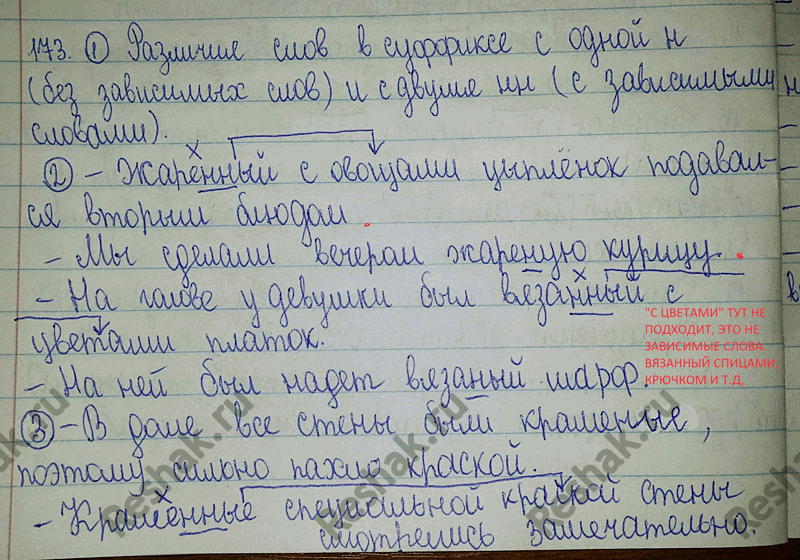 173. ① Различие слов в суффиксе с одной н
(без зависимых слов) и с двумя нн (с зависимыми
словами).
② - Жаренный с овощами цыплёнок подавал-
ся вторым блюдом.
- Мы сделали вечером жареную курицу.
- На голове у девушки был вязанный с
цветами платок.
"С ЦВЕТАМИ" ТУТ НЕ
ПОДХОДИТ, ЭТО НЕ
ЗАВИСИМЫЕ СЛОВА.
ВЯЗАННЫЙ СПИЦАМИ,
КРЮЧКОМ И Т.Д.
- На ней был надет вязаный шарф.
③ - В доме все стены были крашеные,
поэтому сильно пахло краской.
- Крашенные специальной краской стены
смотрелись замечательно.
Reshak.ru
Reshak.ru
Reshak.ru
Reshak.ru